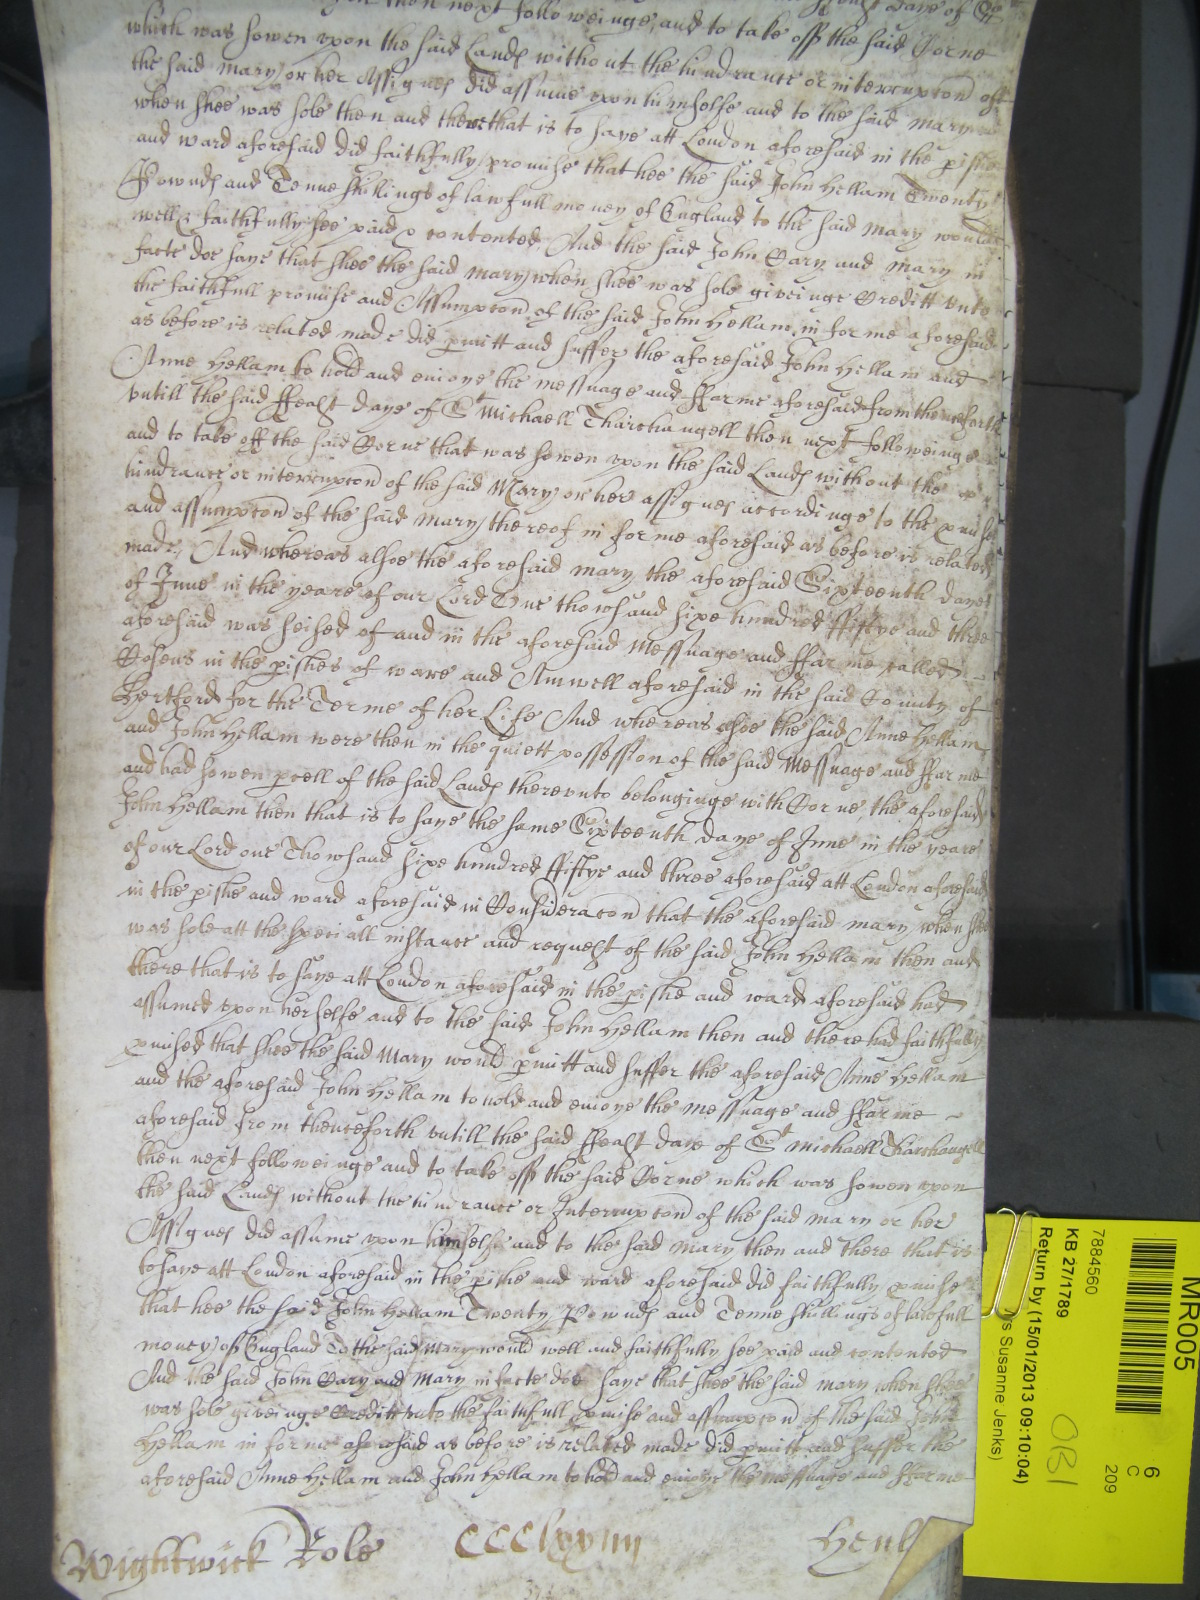 then next followeinge, and to take off the said Corne
which was sowen vpon the said Lands without the hindrance or interrupcon off
the said mary or her Assignes did assume vpon himselfe and to the said mary
when shee was sole then and there that is to saye att London aforesaid in the pishe
and ward aforesaid did faithfully promise that hee the said John Hellam Twenty
Pownds and Tenne shillings of lawfull money of England to the said mary would
well & faithfully see paid & contented, And the said John Cary and mary in
facte doe saye that shee the said mary when shee was sole giveinge Creditt vnto
the faithfull promise and Assumpcon of the said John Hellam in forme aforesaid
as before is related made did pmitt and suffer the aforesaid John Hellam and
Anne Hellam to hold and enioye the messuage and ffarme aforesaid from thenceforth
vntill the said ffeast daye of St Michaell Tharchangell then next followeinge
and to take off the said Corne that was sowen vpon the said Lands without the
hindrance or interrupcon of the said Mary or her assignes accordinge to the pmise
and assumpcon of the said mary thereof in forme aforesaid as before is related
made, And whereas alsoe the aforesaid mary the aforesaid Sixteenth daye
of June in the yeare of our Lord One thowsand sixe hundred ffiftye and three
aforesaid was seised of and in the aforesaid Messuage and ffarme called
Cosens in the pishes of ware and Amwell aforesaid in the said County of
Hertford for the Terme of her Life And whereas alsoe the said Anne Hellam
and John Hellam were then in the quiett possession of the said Messuage and ffarme
and had sowen pcell of the said Lands therevnto belonginge with Corne, the aforesaid
John Hellam then that is to saye the same Sixteenth daye of June in the yeare
of our Lord one Thowsand sixe hundred ffiftye and three aforesaid att London aforesaid
in the pishe and ward aforesaid in Consideracon that the aforesaid mary when shee
was sole att the speciall instance and request of the said John Hellam then and
there that is to saye att London aforesaid in the pishe and ward aforesaid had
assumed vpon herselfe and to the said John Hellam then and there had faithfully
pmised that shee the said Mary would pmitt and suffer the aforesaid Anne Hellam
and the aforesaid John Hellam to hold and enioye the messuage and ffarme
aforesaid from thenceforth vntill the said ffeast daye of St Michaell Tharchangell
then next followeinge and to take off the said Corne which was sowen vpon
the said Lands without the hindrance or Interrupcon of the said mary or her
Assignes did assume vpon himselfe and to the said mary then and there that is
to saye att London aforesaid in the pishe and ward aforesaid did faithfully pmise
that hee the said John Hellam Twenty Pownds and Tenne shillings of lawfull
money off England To the said Mary would well and faithfully see paid and contented
And the said John Cary and Mary in facte doe saye that shee the said mary when shee
was sole giveinge Creditt vnto the faithfull pmise and assumpcon of the said John
Hellam in forme aforesaid as before is related made did pmitt and suffer the
aforesaid Anne Hellam and John Hellam to hold and enioye the messuage and ffarme
Wightwick Role CCClxxiiii Henl
MR005
6
C
209
7884560
KB 27/1789
Return by (15/01/2013 09:10:04)
s Susanne Jenks)
OB1